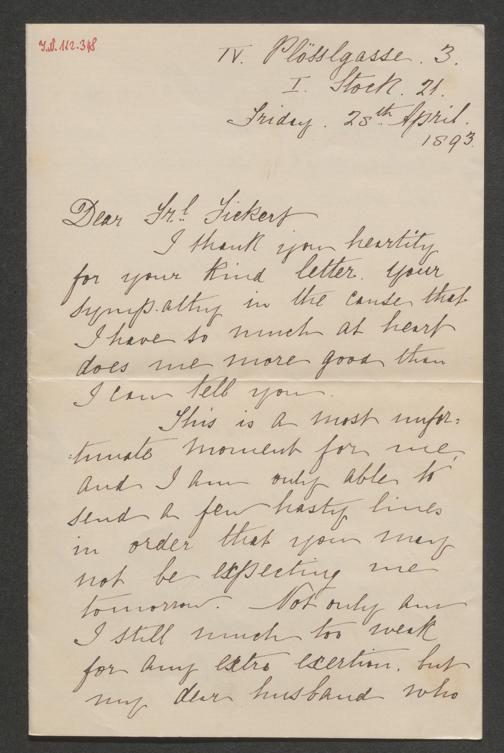 J.N. 112.348
IV. Plösslgasse. 3.
I. Stock. 21.
Friday. 28th April.
1893.
Dear Frl. Fickert
I thank you heartily
for your kind letter. Your
sympathy in the cause that
I have so much at heart
does me more good than
I can tell you.
This is a most unfor=
=tunate moment for me,
and I am only able to
send a few hasty lines
in order that you may
not be expecting me
tomorrow. Not only am
I still much too weak
for any extra exertion, but
my dear husband who